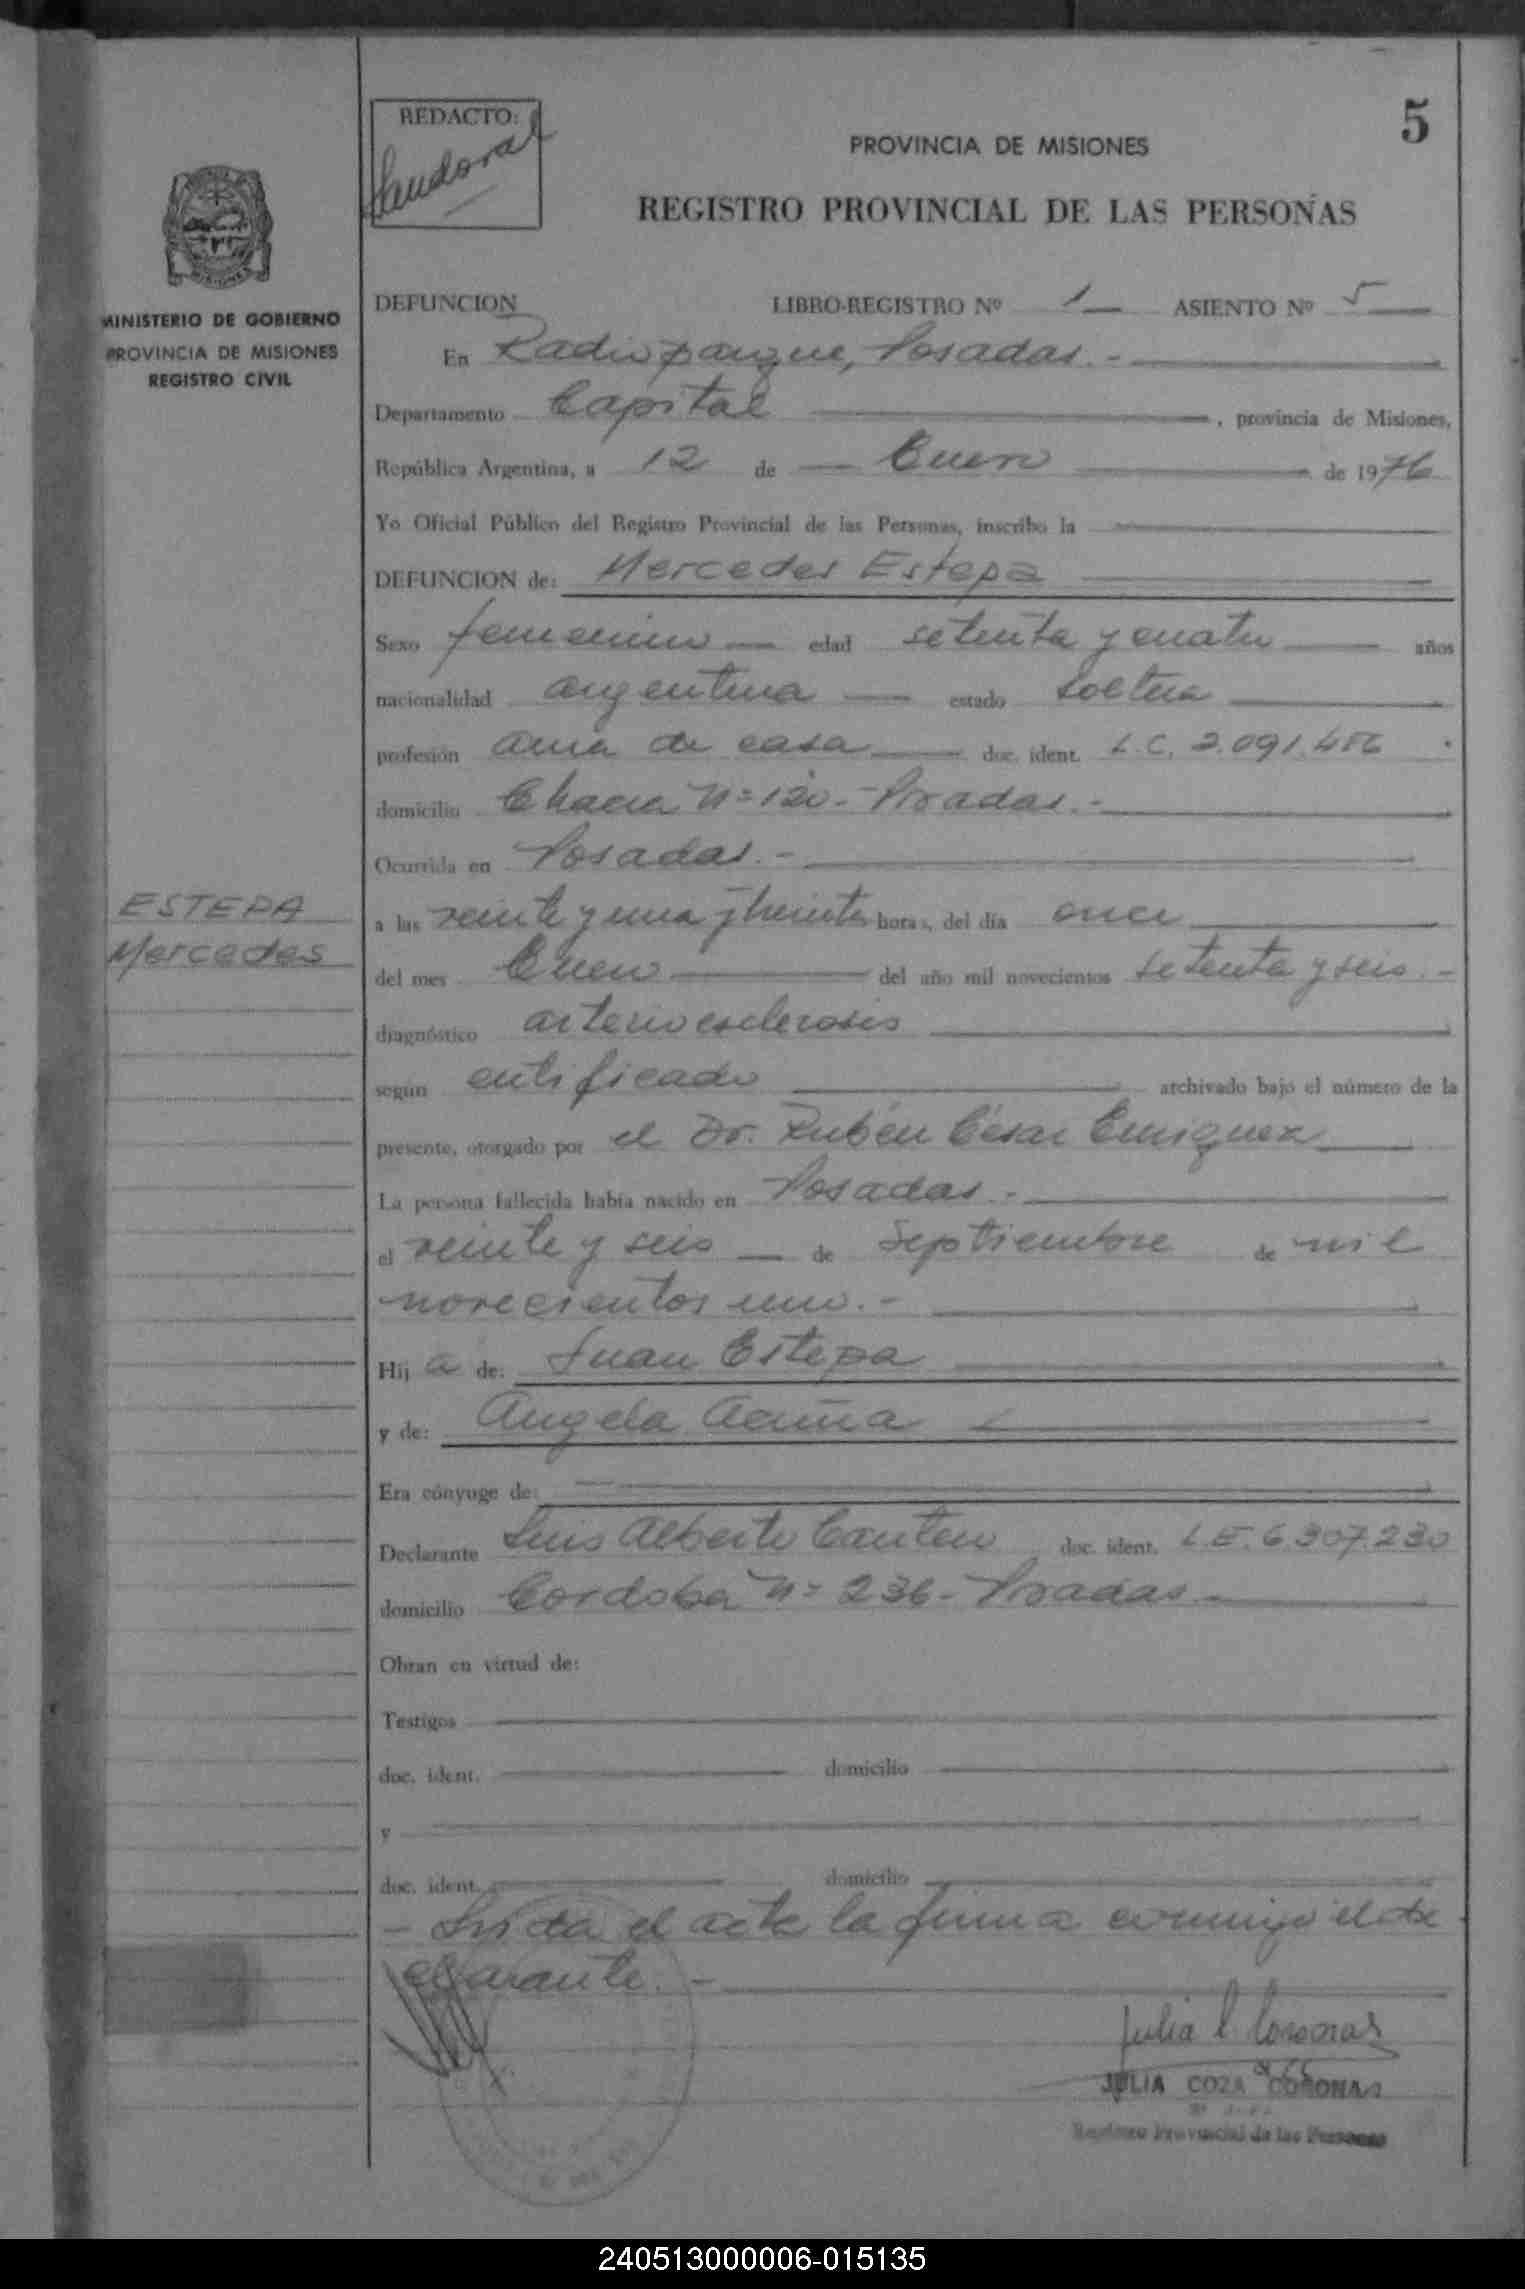 REDACTO:
Sandoval
5
PROVINCIA DE MISIONES
REGISTRO PROVINCIAL DE LAS PERSONAS
MINISTERIO DE GOBIERNO
PROVINCIA DE MISIONES
REGISTRO CIVIL
DEFUNCION LIBRO-REGISTRO Nº 1 ASIENTO Nº 5
En Radioparque, Posadas.-
Departamento Capital, provincia de Misiones,
República Argentina, a 12 de Enero de 1976
Yo Oficial Público del Registro Provincial de las Personas, inscribo la
DEFUNCION de: Mercedes Estepa
Sexo femenino edad setenta y cuatro años
nacionalidad argentina estado soltera
profesión ama de casa doc. ident. L.C. 2.091.456
domicilio Chacra Nº 120.- Posadas.-
Ocurrida en Posadas.-
ESTEPA
Mercedes
a las veinte y una y treinta horas, del día once
del mes Enero del año mil novecientos setenta y seis.-
diagnóstico arterioesclerosis
según certificado archivado bajo el número de la
presente, otorgado por el Dr. Rubén César Enriquez
La persona fallecida había nacido en Posadas.-
el veinte y seis de Septiembre de mil
novecientos uno.-
Hija de: Juan Estepa
y de: Angela Acuña
Era cónyuge de:
Declarante Luis Alberto Cantero doc. ident. L.E. 6.307.230
domicilio Cordoba Nº 236- Posadas
Obran en virtud de:
Testigos
doc. ident. domicilio
y
doc. ident. domicilio
- Leida el acta la firma conmigo el de
clarante.-
Julia C. Coronas
JULIA COZA de CORONAS
Registro Provincial de las Personas
240513000006-015135